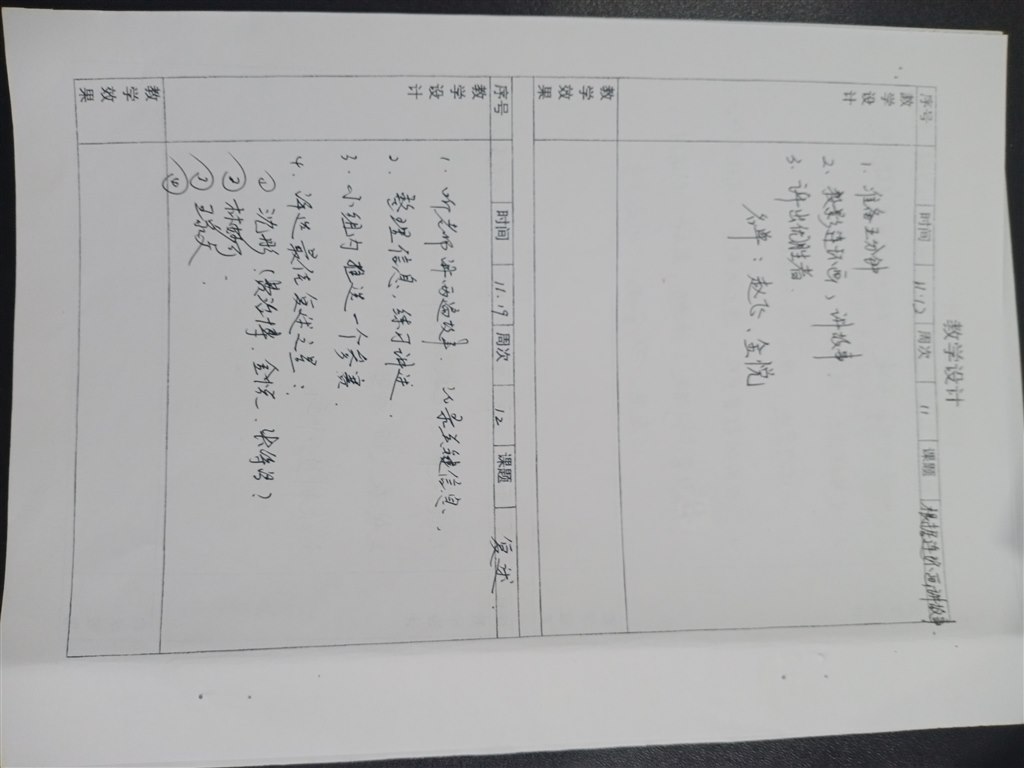 教学设计
序号 时间 11.12 周次 11 课题 根据连环画讲故事.
教学设计
1. 准备五分钟
2. 投影连环画，讲故事.
3. 评出优胜者
名单：赵飞、金悦
教学效果
序号 时间 11.19 周次 12 课题 复述.
教学设计
1. 听老师讲两遍故事. 记录关键信息，
2. 整理信息，练习讲述.
3. 小组内推选一个参赛.
4. 评选最佳复述之星：
① 沈彤（ 金悦、
②
③
④
教学效果